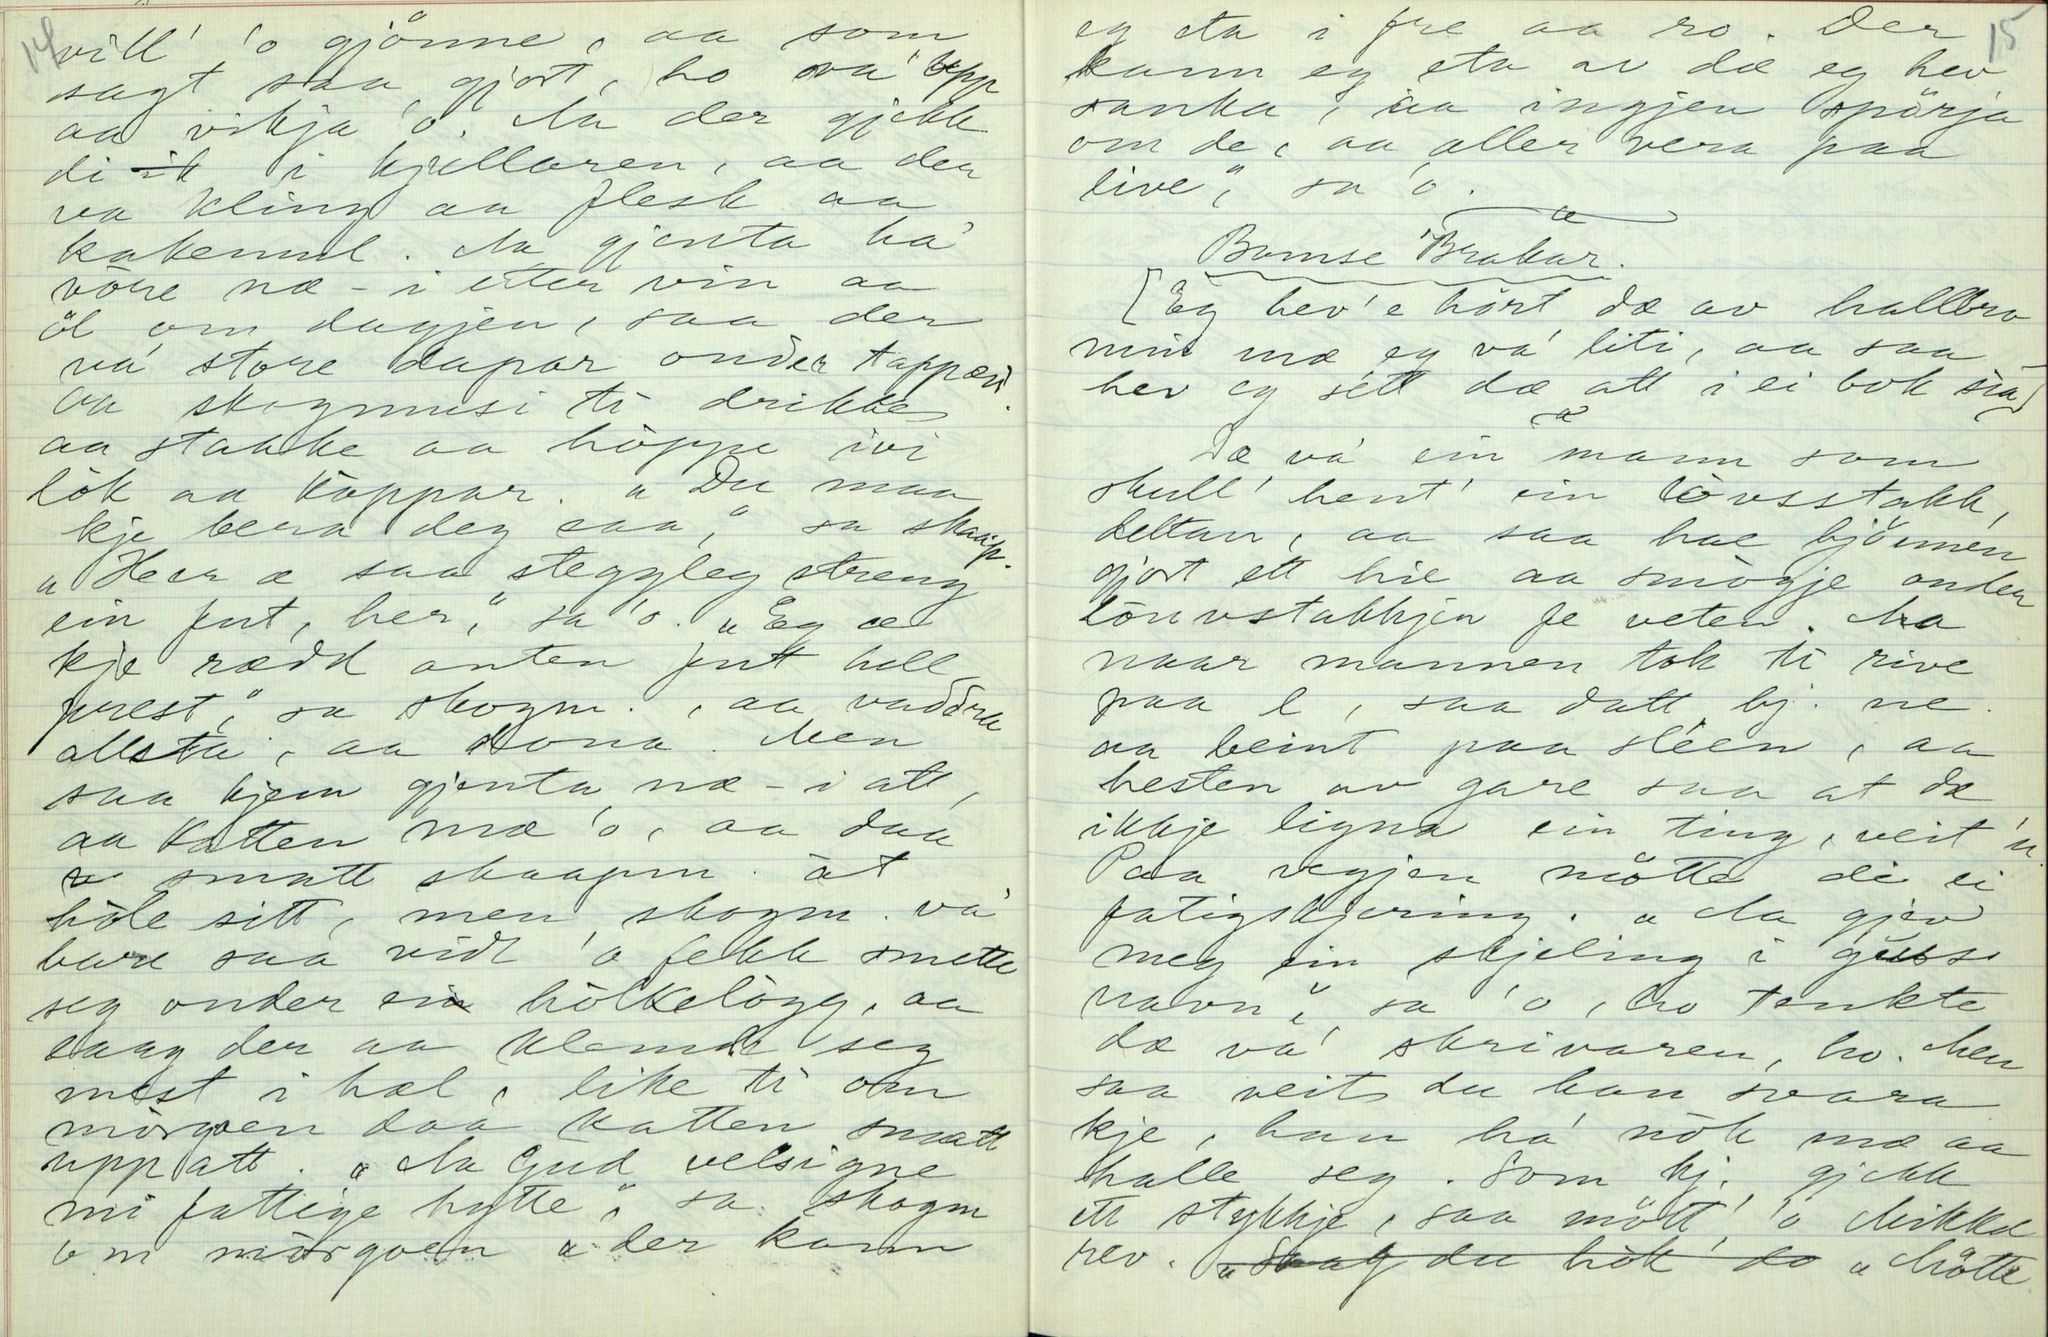 14
vill' 'o gjönne, aa som
sagt saa gjort, ho va' upp
aa vikja 'o. Na der gjekk
di i kjellaren, aa der
va kling aa flesk aa
kakemul. Na gjenta ha'
vöre næ - i etter vin aa
öl om dagjen, saa der
va' store dapar onder tappen.
Aa skogmusi ti drikke
aa stakke aa höppe ivi
lök aa koppar. "Du maa
kje bera deg saa," sa skaapm.
"Heer æ saa steggleg streng
ein fut, her," sa 'o. "Eg æ
kje rædd anten fut hell
prest," sa skogm., aa vaddra
allsta', aa dona. Men
saa kjem gjenta næ - i att,
aa katten mæ 'o, aa daa
smatt skaapm. at
höle sitt, men skogm. va'
bare saa vidt 'o fekk smette
seg onder ein hölkelögg, aa
laag der aa klemde seg
mest i hæl, like ti om
mörgoen daa katten smatt
upp att. "Na Gud velsigne
mi fattige hytte," sa skogm
om mörgoen "der kann
15
eg eta i fre aa ro. Der
kann eg eta av dæ eg hev
sanka, aa ingjen spörja
om de, aa aller vera paa
live," sa 'o.
Bamse Brakar.
[Eg hev'e hört dæ av hallbro
min mæ eg va' liti, aa saa
hev eg sett dæ att i ei bok sia]
Dæ va' ein mann som
skull' hent' ein lövsstakk,
deltan, aa saa hae björnen
gjort ett hie aa smögje onder
löuvstakkjen fe veten. Na
naar mannen tok ti rive
paa l, saa datt bj. ne.
aa beint paa sleen, aa
hesten av gare saa at dæ
ikkje ligna ein ting, veit 'u.
Paa vegjen mötte di ei
fatigskjæring. "Na gjev
meg ein skjeling i guss
navn," sa 'o, ho tenkte
dæ va' skrivaren, ho. Men
saa veit du han svara
kje, han ha' nök mæ aa
halle seg. Som bj. gjekk
ett stykkje, saa mött' 'o Mikkel
rev. "Saag du nök do "Mötte